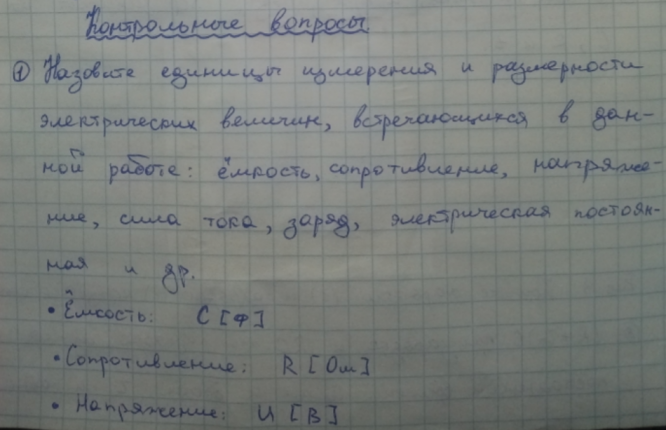 Контрольные вопросы
① Назовите единицы измерения и размерности
электрических величин, встречающихся в дан-
ной работе: ёмкость, сопротивление, напряже-
ние, сила тока, заряд, электрическая постоян-
ная и др.
• Ёмкость: C [Ф]
• Сопротивление: R [Ом]
• Напряжение: U [В]